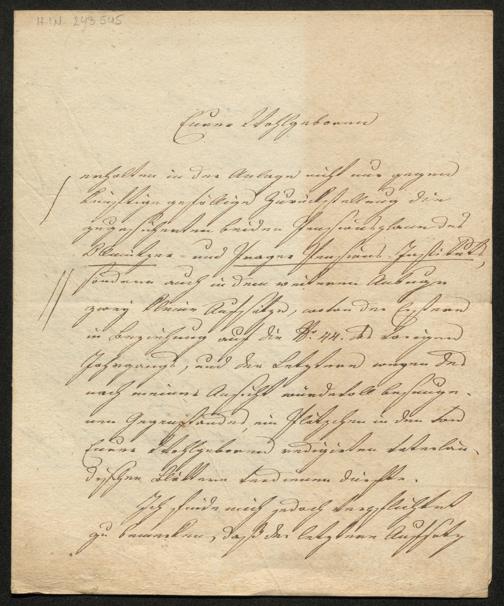 H.I.N. 243545
Euer Wohlgeboren
erhalten in der Anlage nicht nur gegen
künftige gefällige Zurückstellung die
zugesicherten beiden Pensionsplane des
Olmützer- und Prager Pensions-Instituts,
sondern auch in dem weiteren Anbuge
zwey kleine Aufsätze, wovon der Erstere
in Beziehung auf die No. 44. des vorigen
Jahrgangs, und der Letztere wegen des
nach meiner Ansicht würdevoll besunge-
nen Gegenstandes, ein Plätzchen in den von
Euer Wohlgeboren redigirten vaterlän-
dischen Blättern verdienen dürfte.
Ich finde mich jedoch verpflichtet
zu bemerken, daß der letztere Aufsatz